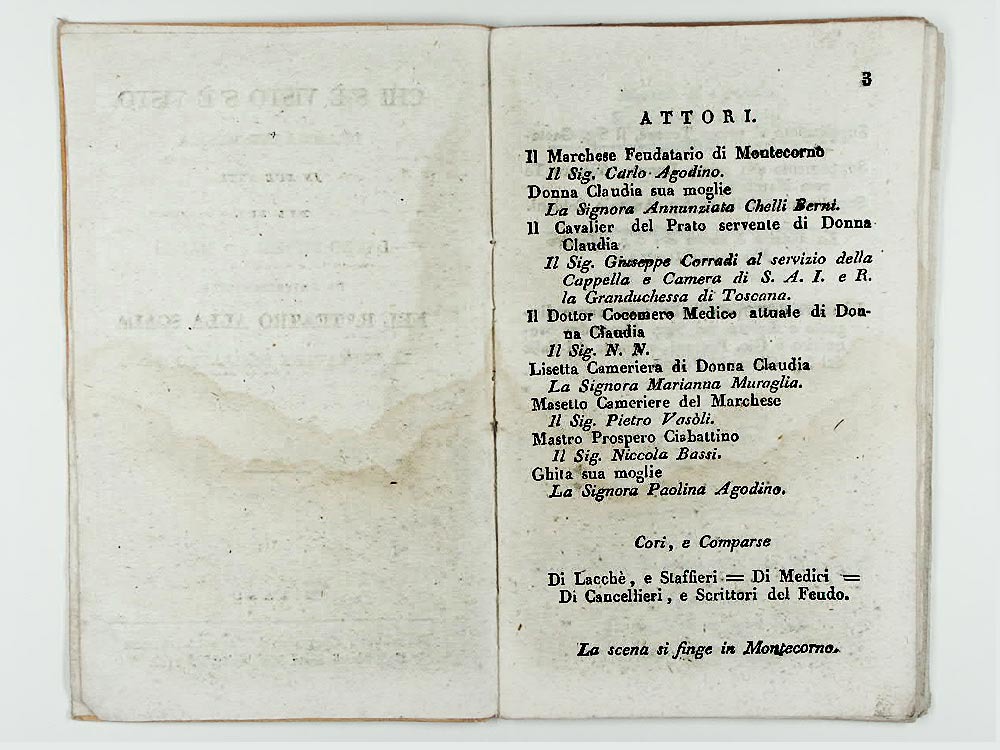 3
ATTORI.
Il Marchese Feudatario di Montecorno
Il Sig. Carlo Agodino.
Donna Claudia sua moglie
La Signora Annunziata Chelli Berni.
Il Cavalier del Prato servente di Donna
Claudia
Il Sig. Giuseppe Corradi al servizio della
Cappella e Camera di S. A. I. e R.
la Granduchessa di Toscana.
Il Dottor Cocomero Medico attuale di Don-
na Claudia
Il Sig. N. N.
Lisetta Cameriera di Donna Claudia
La Signora Marianna Muraglia.
Masetto Cameriere del Marchese
Il Sig. Pietro Vasòli.
Mastro Prospero Ciabattino
Il Sig. Niccola Bassi.
Ghita sua moglie
La Signora Paolina Agodino.
Cori, e Comparse
Di Lacchè, e Staffieri = Di Medici =
Di Cancellieri, e Scrittori del Feudo.
La scena si finge in Montecorno.